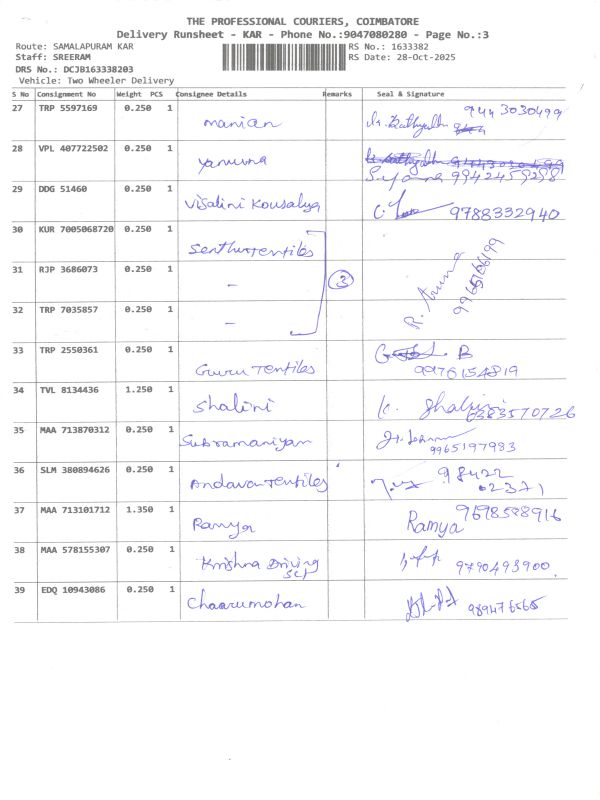 THE PROFESSIONAL COURIERS, COIMBATORE
Delivery Runsheet - KAR - Phone No.:9047080280 - Page No.:3
Route: SAMALAPURAM KAR RS No.: 1633382
Staff: SREERAM RS Date: 28-Oct-2025
DRS No.: DCJB163338203
Vehicle: Two Wheeler Delivery
S No Consignment No Weight PCS Consignee Details Remarks Seal & Signature
27 TRP 5597169 0.250 1 manian 9443030499
28 VPL 407722502 0.250 1 yamuna 9942459298
29 DDG 51460 0.250 1 Visalini Kousalya 9788332940
30 KUR 7005068720 0.250 1 Senthurtentiles
31 RJP 3686073 0.250 1 - 3 R. Aruna
32 TRP 7035857 0.250 1 -
33 TRP 2550361 0.250 1 Guru Tentiles B
9976154819
34 TVL 8134436 1.250 1 Shalini K. Shalini
6383570726
35 MAA 713870312 0.250 1 Subramaniyan
9965197983
36 SLM 380894626 0.250 1 Andavartentiles 98422
02371
37 MAA 713101712 1.350 1 Ramya Ramya 9698598916
38 MAA 578155307 0.250 1 Krishna Driving
Scl 9790493900
39 EDQ 10943086 0.250 1 Chaarumohan 989476565